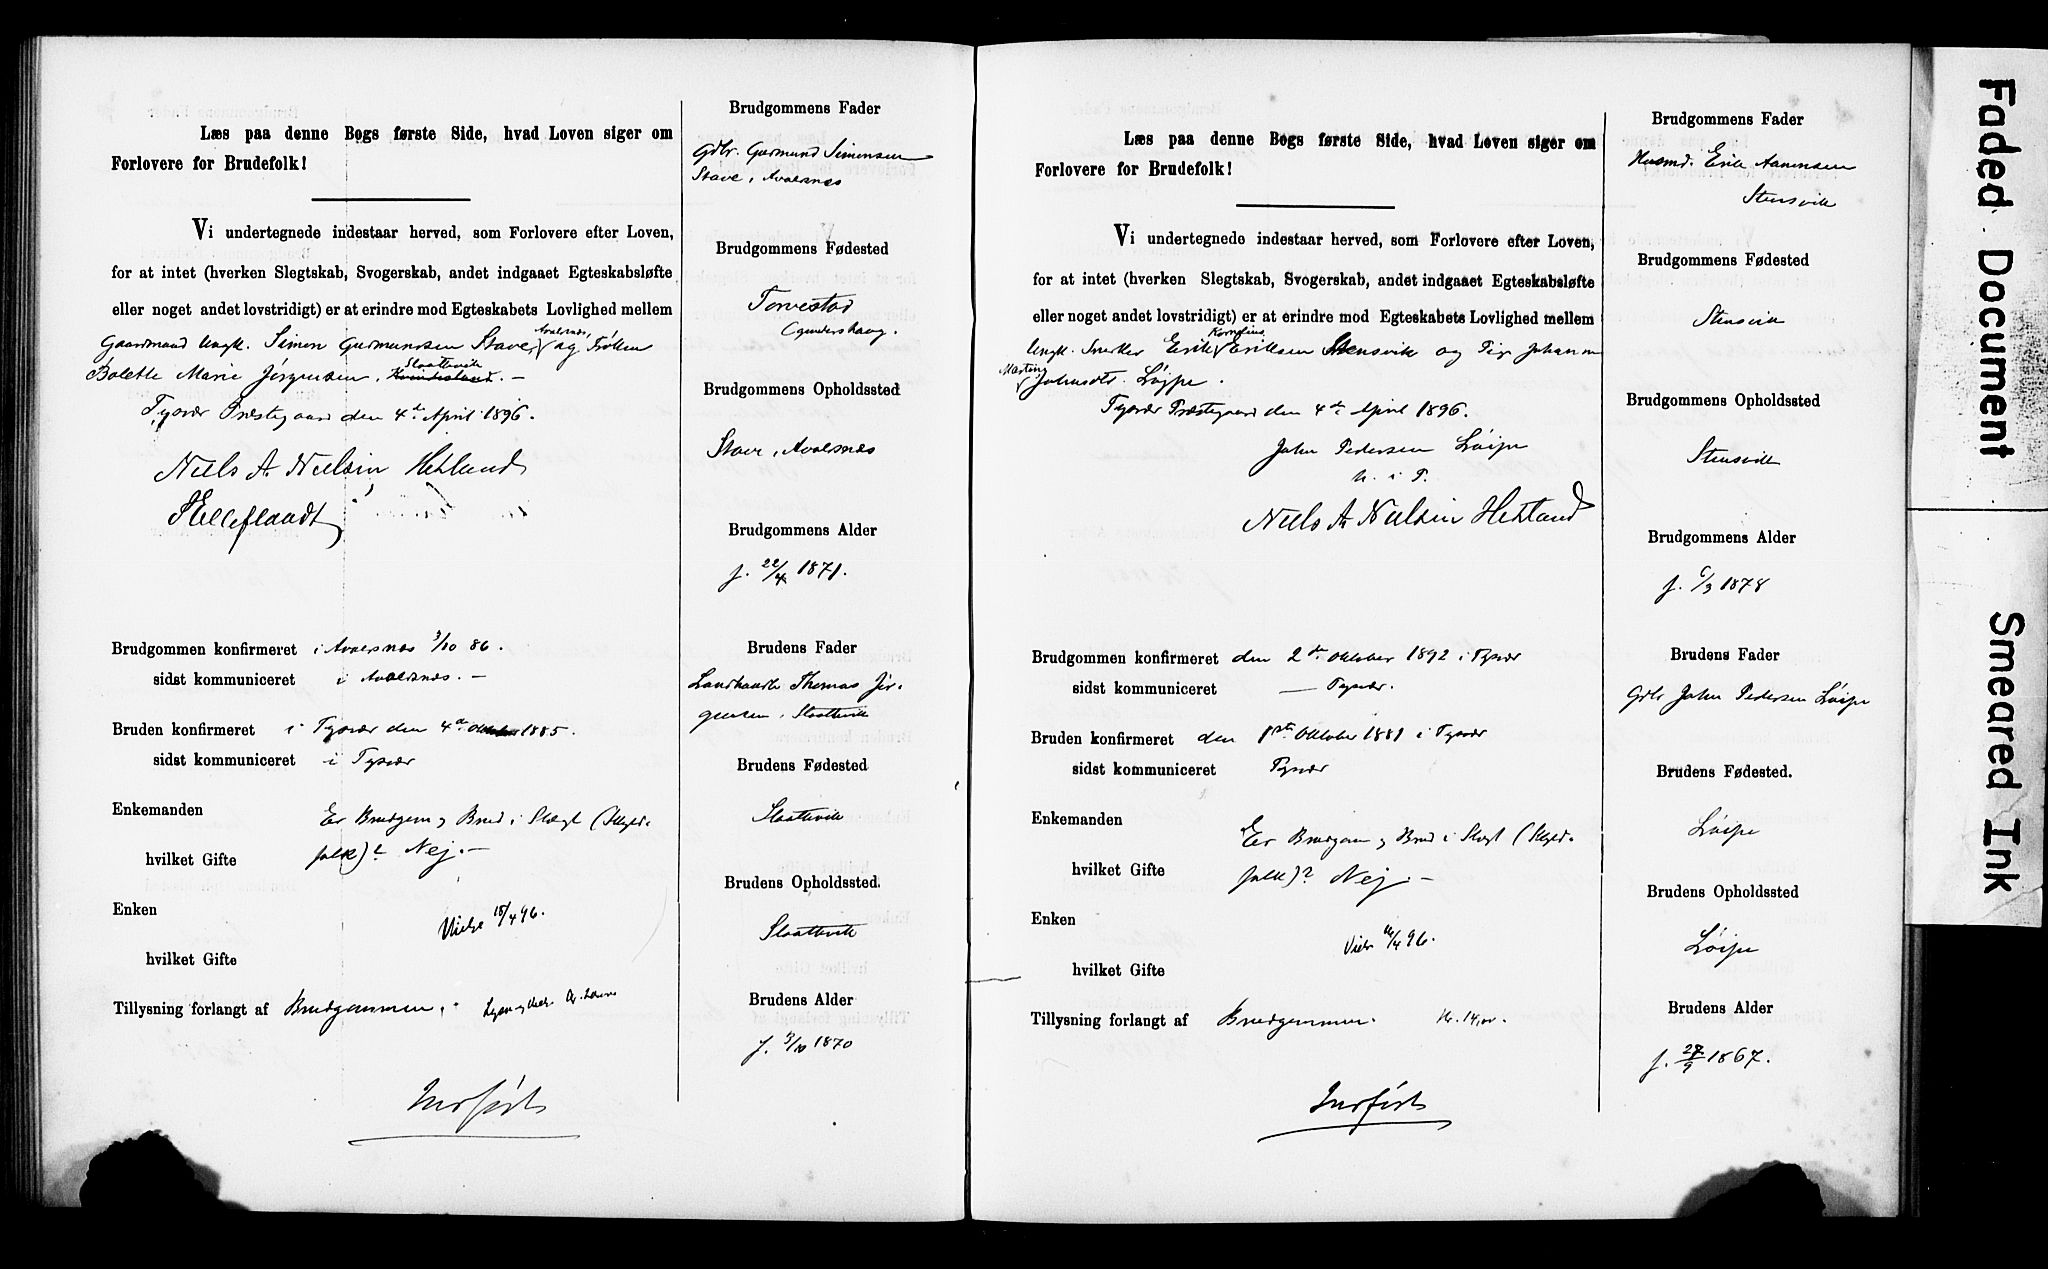 Læs paa denne Bogs første Side, hvad Loven siger om
Forlovere for Brudefolk!
Vi undertegnede indestaar herved, som Forlovere efter Loven,
for at intet (hverken Slegtskab, Svogerskab, andet indgaaet Egteskabsløfte
eller noget andet lovstridigt) er at erindre mod Egteskabets Lovlighed mellem
Gaardmand Ungk. Simon Gudmunsen Stave, Avalsnes, og Frøken
Bolette Marie Jørgensen, Slaattevik
Tysvær Prestegaard den 4de April 1896.
Niels A Nielsen Hetland
Brudgommen konfirmeret i Avalsnæs 3/10 86.
sidst kommuniceret i Avalsnæs. -
Bruden konfirmeret i Tysvær den 4de Oktober 1885.
sidst kommuniceret i Tysvær
Enkemanden
Er Brudgom og Brud i Slægt (Skyld-
folk)? Nej. -
hvilket Gifte
Enken
Vielse 18/4 96.
hvilket Gifte
Tillysning forlangt af Brudgommen.
Indført
Brudgommens Fader
Gdbr. Gudmund Simonsen
Stave, Avalsnæs
Brudgommens Fødested
Torvestad
Brudgommens Opholdssted
Stave, Avalsnæs
Brudgommens Alder
f. 22/4 1871.
Brudens Fader
Landhandle Thomas Jør-
gensen, Slaattevik
Brudens Fødested
Slaattevik
Brudens Opholdssted.
Slaattevik
Brudens Alder
f. 5/10 1870
Læs paa denne Bogs første Side, hvad Loven siger om
Forlovere for Brudefolk!
Vi undertegnede indestaar herved, som Forlovere efter Loven,
for at intet (hverken Slegtskab, Svogerskab, andet indgaaet Egteskabsløfte
eller noget andet lovstridigt) er at erindre mod Egteskabets Lovlighed mellem
Ungk. Snekker Erik Kornelius Eriksen Stensvik og Pige Johanne
Martine Johnsdtr. Løipe.
Tysvær Præstegaard den 4de April 1896.
John Pedersen Løipe
m. i P.
Niels A Nielsen Hetland
Brudgommen konfirmeret den 2den Oktober 1892 i Tysvær
sidst kommuniceret — Tysvær.
Bruden konfirmeret den 1ste Oktober 1881 i Tysvær
sidst kommuniceret Tysvær
Enkemanden
Er Brudgom og Brud i Slægt (Skyld-
folk)? Nej. -
hvilket Gifte
Enken
Viede 16/4 96.
hvilket Gifte
Tillysning forlangt af Brudgommen. Kr. 14,00.
Indført
Brudgommens Fader
Husmd. Erik Aanensen
Stensvik
Brudgommens Fødested
Stensvik
Brudgommens Opholdssted
Stensvik
Brudgommens Alder
f. 6/3 1878
Brudens Fader
Gdbr John Pedersen Løipe
Brudens Fødested.
Løipe
Brudens Opholdssted
Løipe
Brudens Alder
f. 27/9 1867.
Faded Document
Smeared Ink